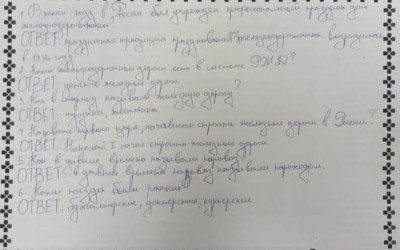 1. В каком году в России был учрежден профессиональный праздник день
железнодорожника?
ОТВЕТ: праздничная традиция празднования железнодорожника возродилась
в году
2. Какие железнодорожные дороги есть в системе РЖД?
ОТВЕТ: детские железные дороги
3. Как в старину называли железную дорогу?
ОТВЕТ: чугунка,
4. Назовите первого царя, начавшего строить железные дороги в России?
ОТВЕТ: Николай I начал строить железные дороги
5. Как в давние времена называли паровоз?
ОТВЕТ: в давние времена паровоз называли пароходом.
6. Какие поезда были раньше?
ОТВЕТ: бухгалтерские, докторские, курьерские.